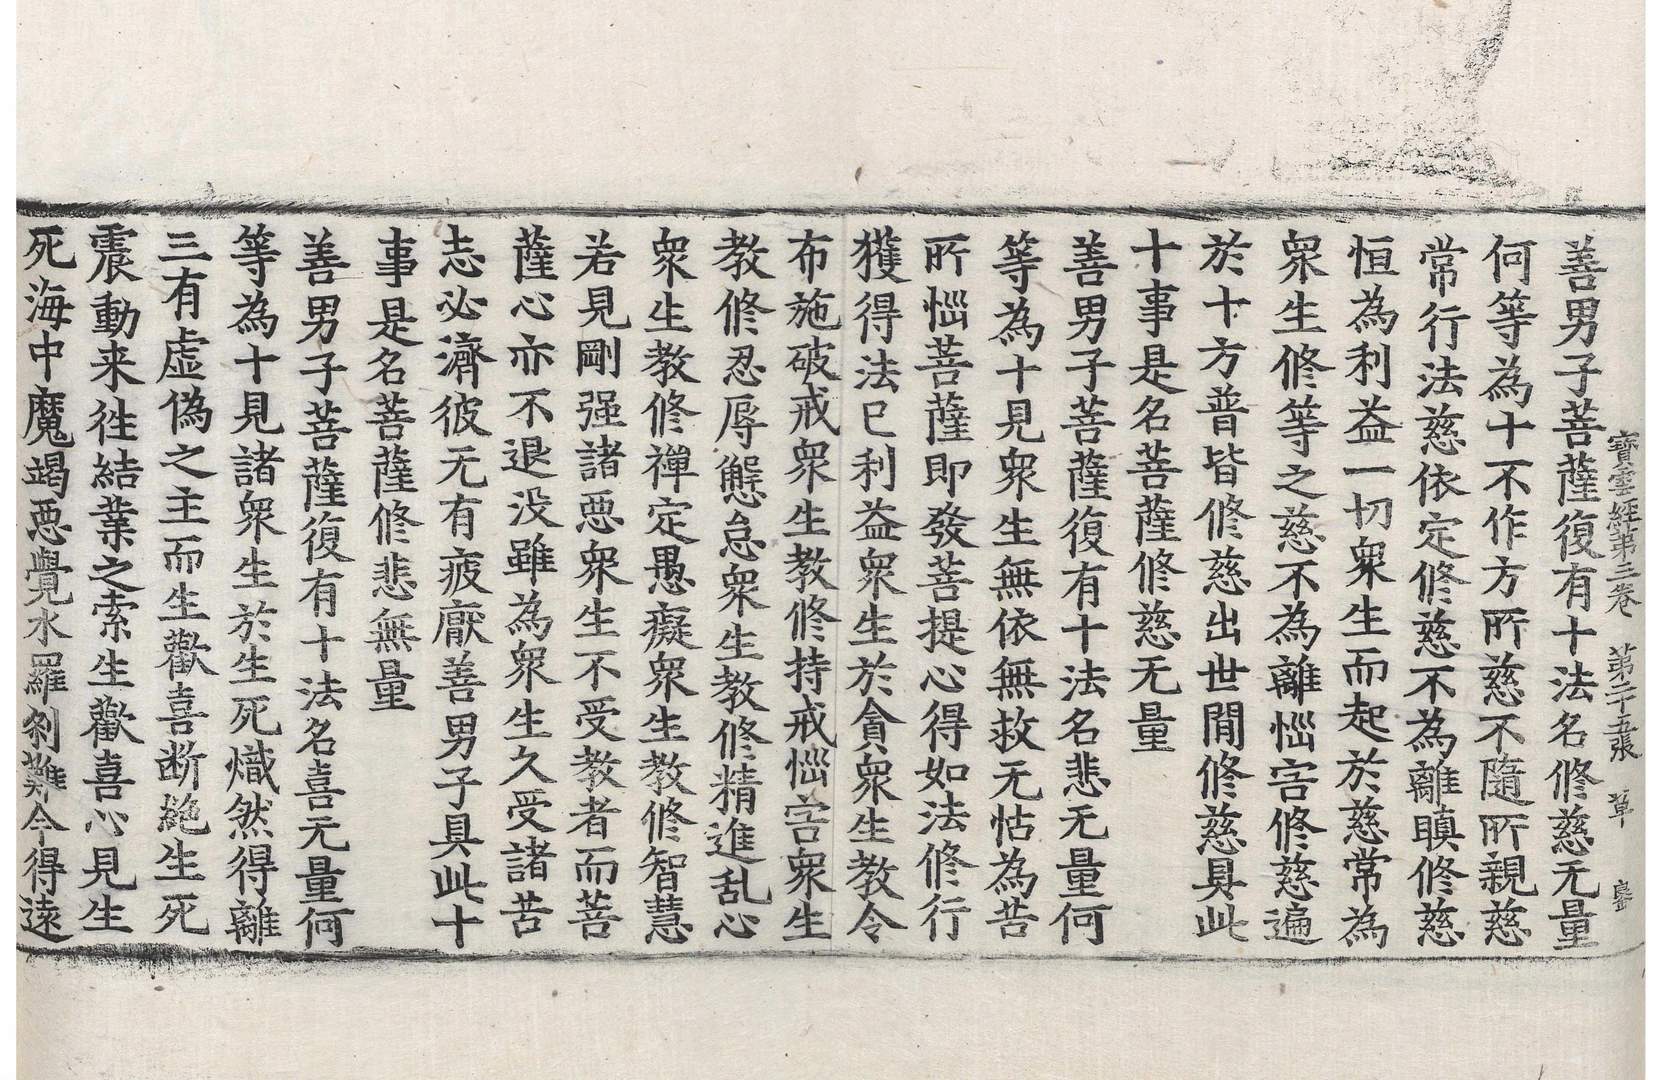 寶雲經第三卷 第二十五張 草
善男子菩薩復有十法名修慈无量
何等為十不作方所慈不隨所親慈
常行法慈依定修慈不為離瞋修慈
恒為利益一切衆生而起於慈常為
衆生修等之慈不為離惱害修慈遍
於十方普皆修慈出世間修慈具此
十事是名菩薩修慈无量
善男子菩薩復有十法名悲无量何
等為十見衆生無依無救无怙為苦
所惱菩薩即發菩提心得如法修行
獲得法已利益衆生於貪衆生教令
布施破戒衆生教修持戒惱害衆生
教修忍辱懈怠衆生教修精進乱心
衆生教修禪定愚癡衆生教修智慧
若見剛强諸惡衆生不受教者而菩
薩心亦不退没雖為衆生久受諸苦
志必濟彼无有疲厭善男子具此十
事是名菩薩修悲無量
善男子菩薩復有十法名喜无量何
等為十見諸衆生於生死熾然得離
三有虛偽之主而生歡喜断絶生死
震動来往結業之索生歡喜心見生
死海中魔竭惡覺水羅刹難今得遠